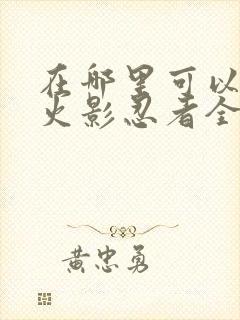 在哪里可以
火影忍者全
黄忠勇